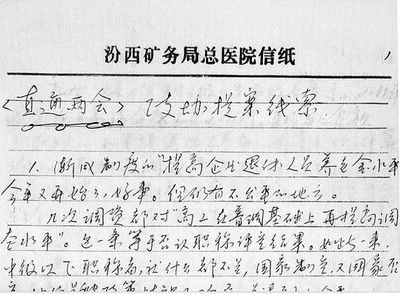 汾西矿务局总医院信纸
《直通两会》 政协提案线索
1. 渐成制度的"提高企业退休人员养老金水平
今年又开始了,好事。但仍有不公平的地方。
几次调资都对"高工在普调基础上再提高调
查水平"。这一条等于否认职称评定结果。如此一来,
中级以下职称高,试什么都不是,国家制定,又国家否